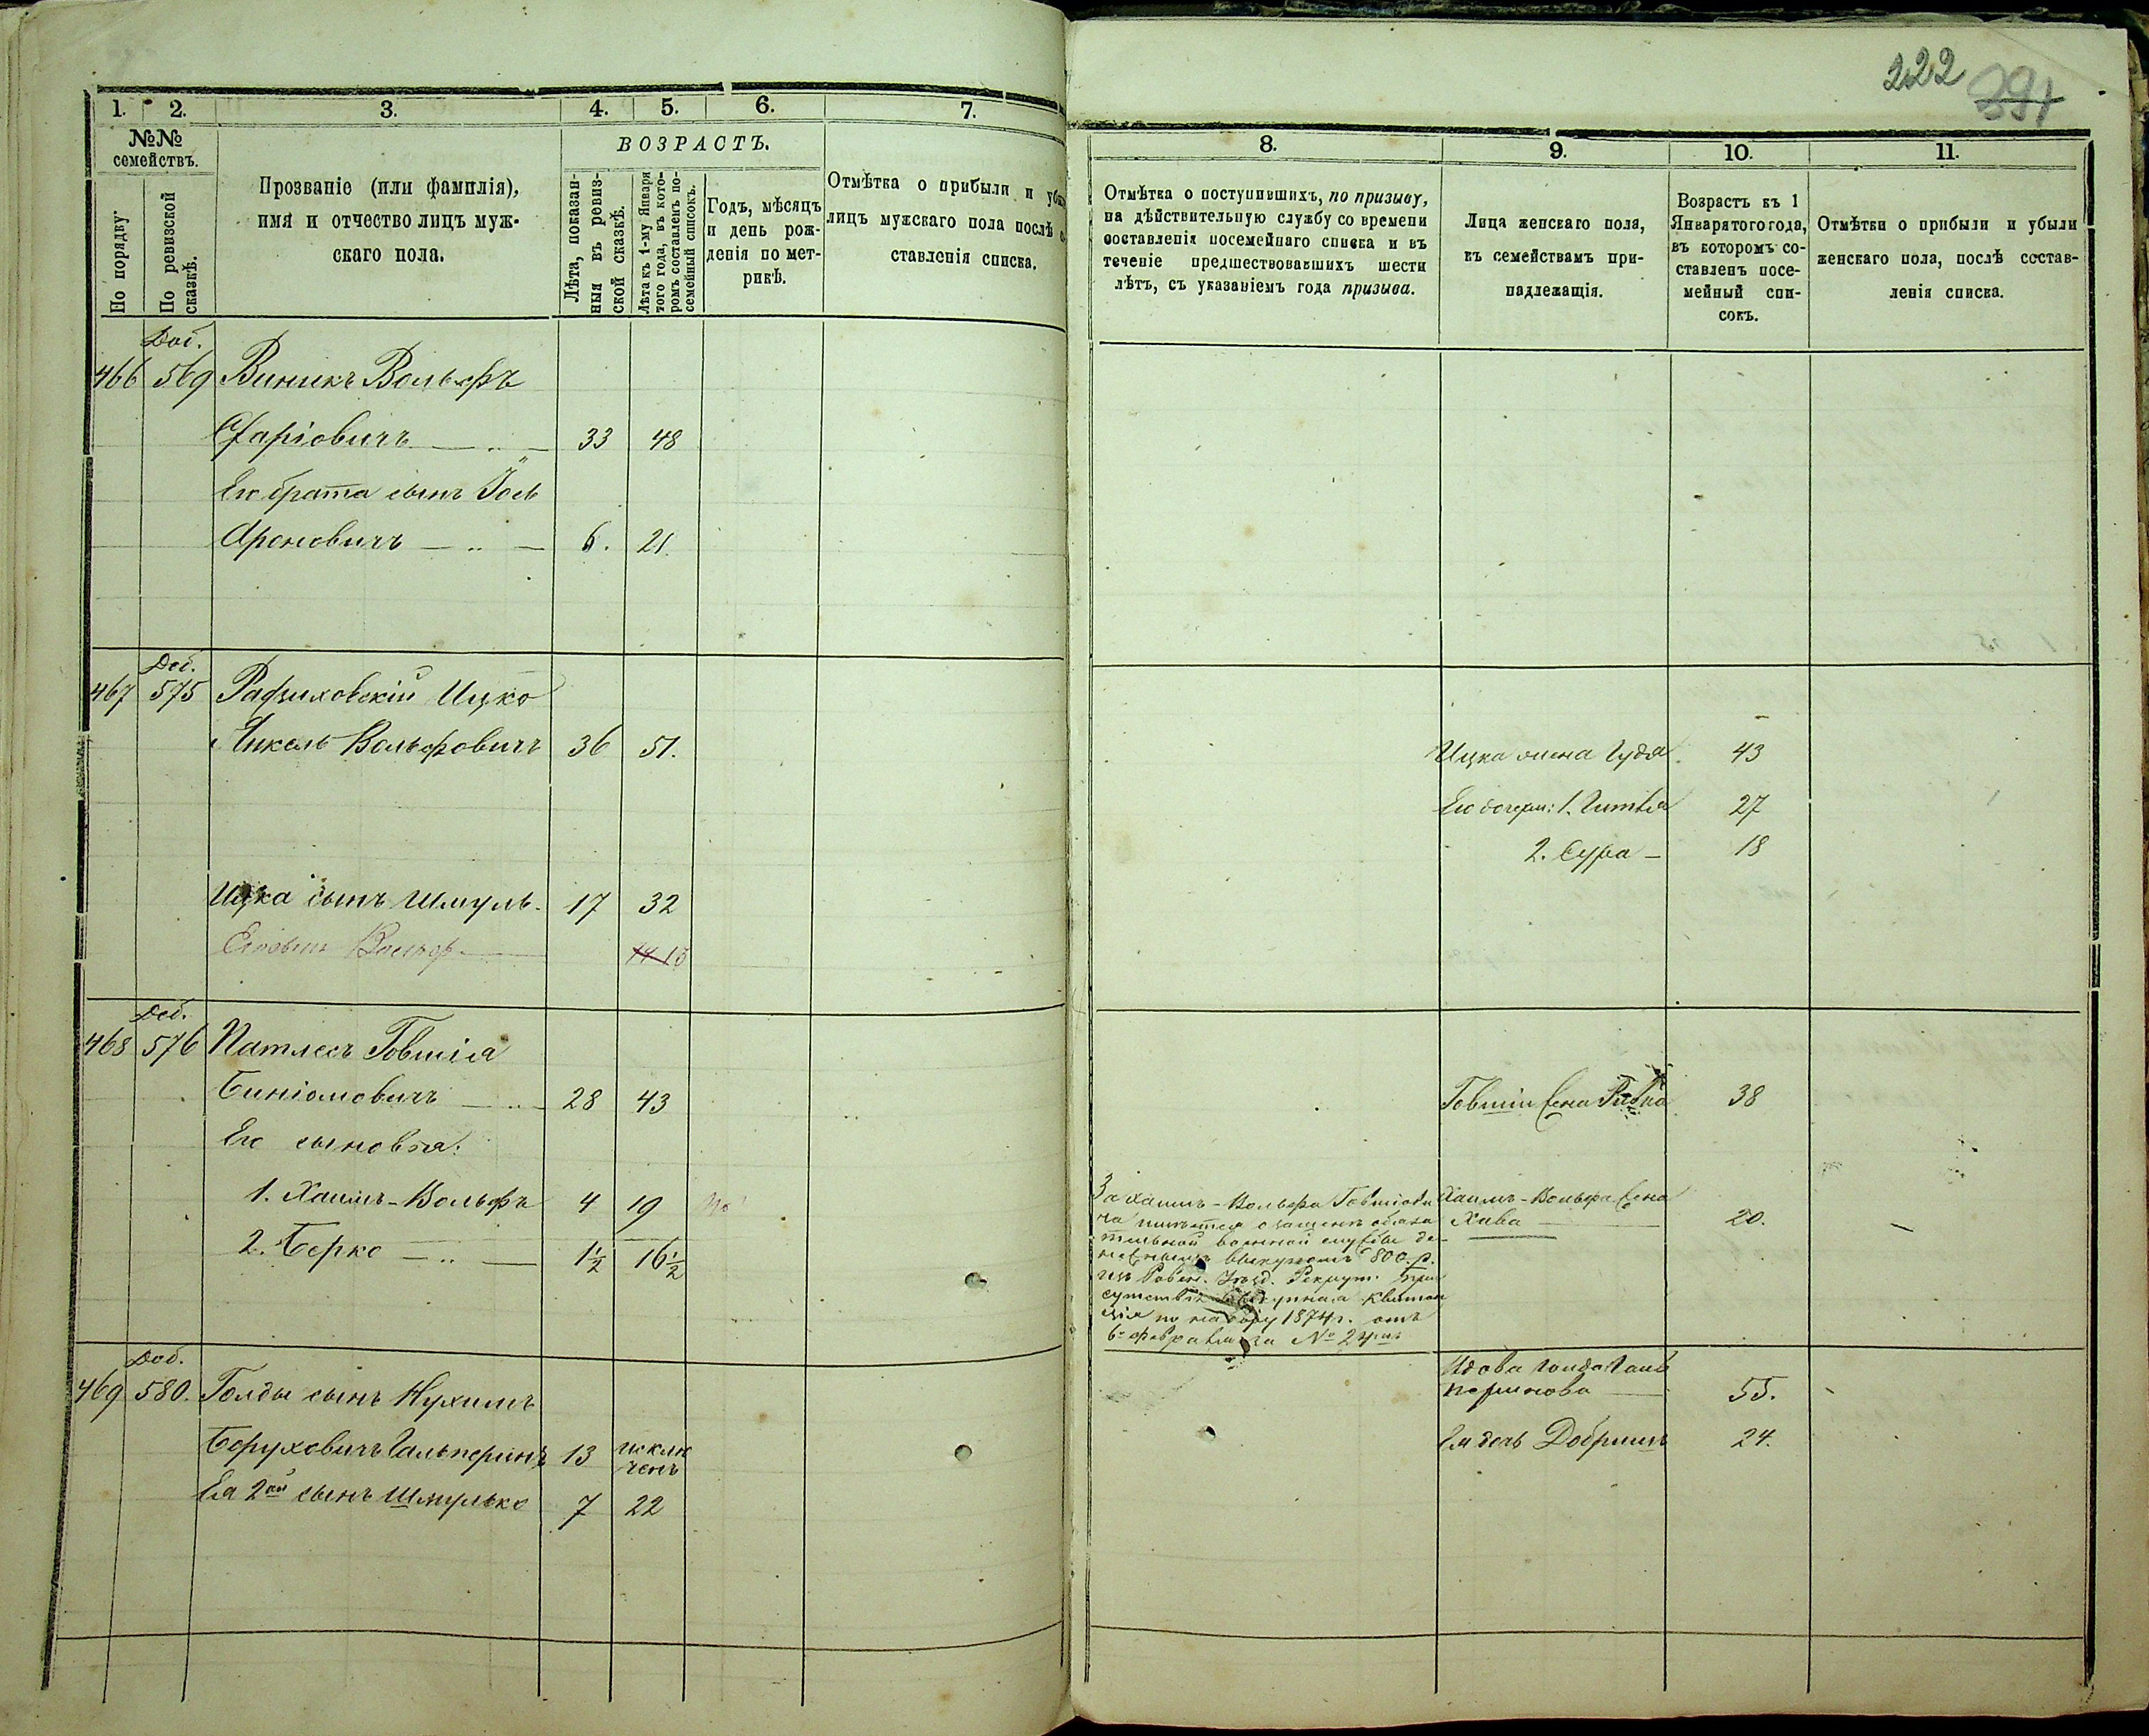 222 391
1. 2. 3. 4. 5. 6. 7.
№№ семействъ.
По порядку.
По ревизской сказкѣ.
Прозваніе (или фамилія),
имя и отчество лицъ муж-
скаго пола.
ВОЗРАСТЪ.
Лѣта, показан-
ныя въ ревиз-
ской сказкѣ.
Лѣта къ 1-му Января
того года, въ кото-
ромъ составленъ по-
семейный списокъ.
Годъ, мѣсяцъ
и день рож-
денія по мет-
рикѣ.
Отмѣтка о прибыли и
лицъ мужскаго пола послѣ
ставленія списка.
Доб.
466 569 Виникъ Вольфъ
33 48
Его брата сынъ Іось
Ароновичъ 6. 21.
Доб.
467 575 Ицко
Янкель Вольфовичъ 36 51.
Ицка сынъ Шмуль 17 32
Его сынъ Вольф 14 13
Доб.
468 576 Патлесъ Говшія
Биніомовичъ 28 43
Его сыновья:
1. Хаимъ-Вольфъ 4 19
2. Берко 1½ 16½
Доб.
469 580. Голды сынъ Нухимъ
Боруховичъ Гальперинъ 13 исклю
ченъ
Ея 2ой сынъ Шмулько 7 22
8. 9. 10. 11.
Отмѣтка о поступившихъ, по призыву,
на дѣйствительную службу со времени
составленія посемейнаго списка и въ
теченіе предшествовавшихъ шести
лѣтъ, съ указаніемъ года призыва.
Лица женскаго пола,
къ семействамъ при-
надлежащія.
Возрастъ къ 1
Января того года,
въ которомъ со-
ставленъ посе-
мейный спи-
сокъ.
Отмѣтки о прибыли и убыли
женскаго пола, послѣ состав-
ленія списка.
Ицка жена Гудя 43
Его дочери: 1. Гитля 27
2. Сура 18
Говшіи жена Ривка 38
За Хаимъ-Вольфа Говшіови
ча имѣется о обяза
тельной военной службы де
нежнымъ выкупомъ 800. р.
изъ Ровен. Уѣзд. Рекрут. при
сутствія квитан
ція по набору 1874 г. отъ
6 февраля за № 24
Хаимъ-Вольфа жена
Хива 20.
Вдова Голда Галь
перинова 55.
Ея дочь Добришъ 24.